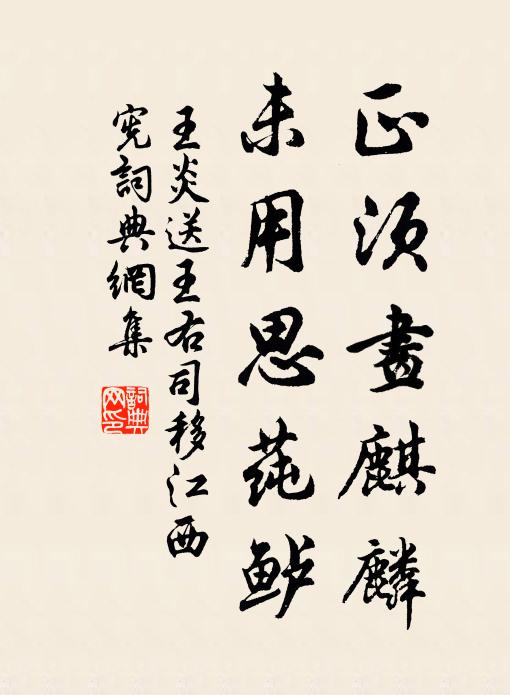 正須畫麒麟
未用思莼鲈
王炎送王右司移江西
宪詞典網集
詞典
网印